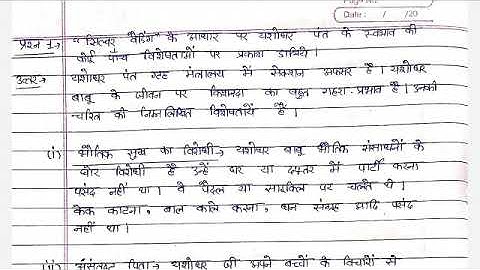 Date : / /20
प्रश्न 1→ "सिल्वर वैडिंग" के आधार पर यशोधर पंत के स्वभाव की
कोई पाँच विशेषताओं पर प्रकाश डालिये।
उत्तर→ यशोधर पंत गृह मंत्रालय में सेक्शन अफसर है। यशोधर
बाबू के जीवन पर किशनदा का बहुत गहरा प्रभाव है। उनकी
चरित्र की निम्नलिखित विशेषतायें है।
(i) भौतिक सुख का विरोधी→ यशोधर बाबू भौतिक संसाधनों के
घोर विरोधी हैं उन्हें घर या दफ्तर में पार्टी करना
पसंद नहीं था। वे पैदल या साइकिल पर चलते थे।
केक काटना, बाल काले करना, धन संग्रह आदि पसंद
नहीं था।
(ii) असंतुष्ट पिता→ यशोधर जी अपने बच्चों के विचारों से